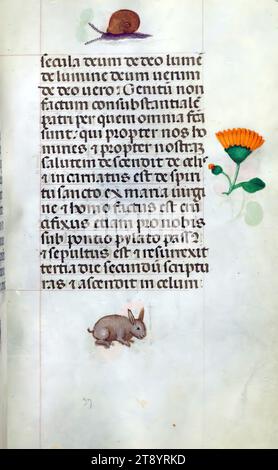 secula deum de deo lume
de lumine deum uerum
de deo uero : Genitū non
factum consubstantialē
patri per quem omnia fcā
sunt : qui propter nos ho
mines et propter nostrā
salutem descendit de celis
et incarnatus est de spiri
tu sancto ex maria uirgi
ne et homo factus est cru
cifixus etiam pro nobis
sub pontio pylato passꝰ
et sepultus est et resurrexit
tertia die secundū scriptu
ras et ascendit in celum :
alamy
Image ID: 2T8YRKD
www.alamy.com